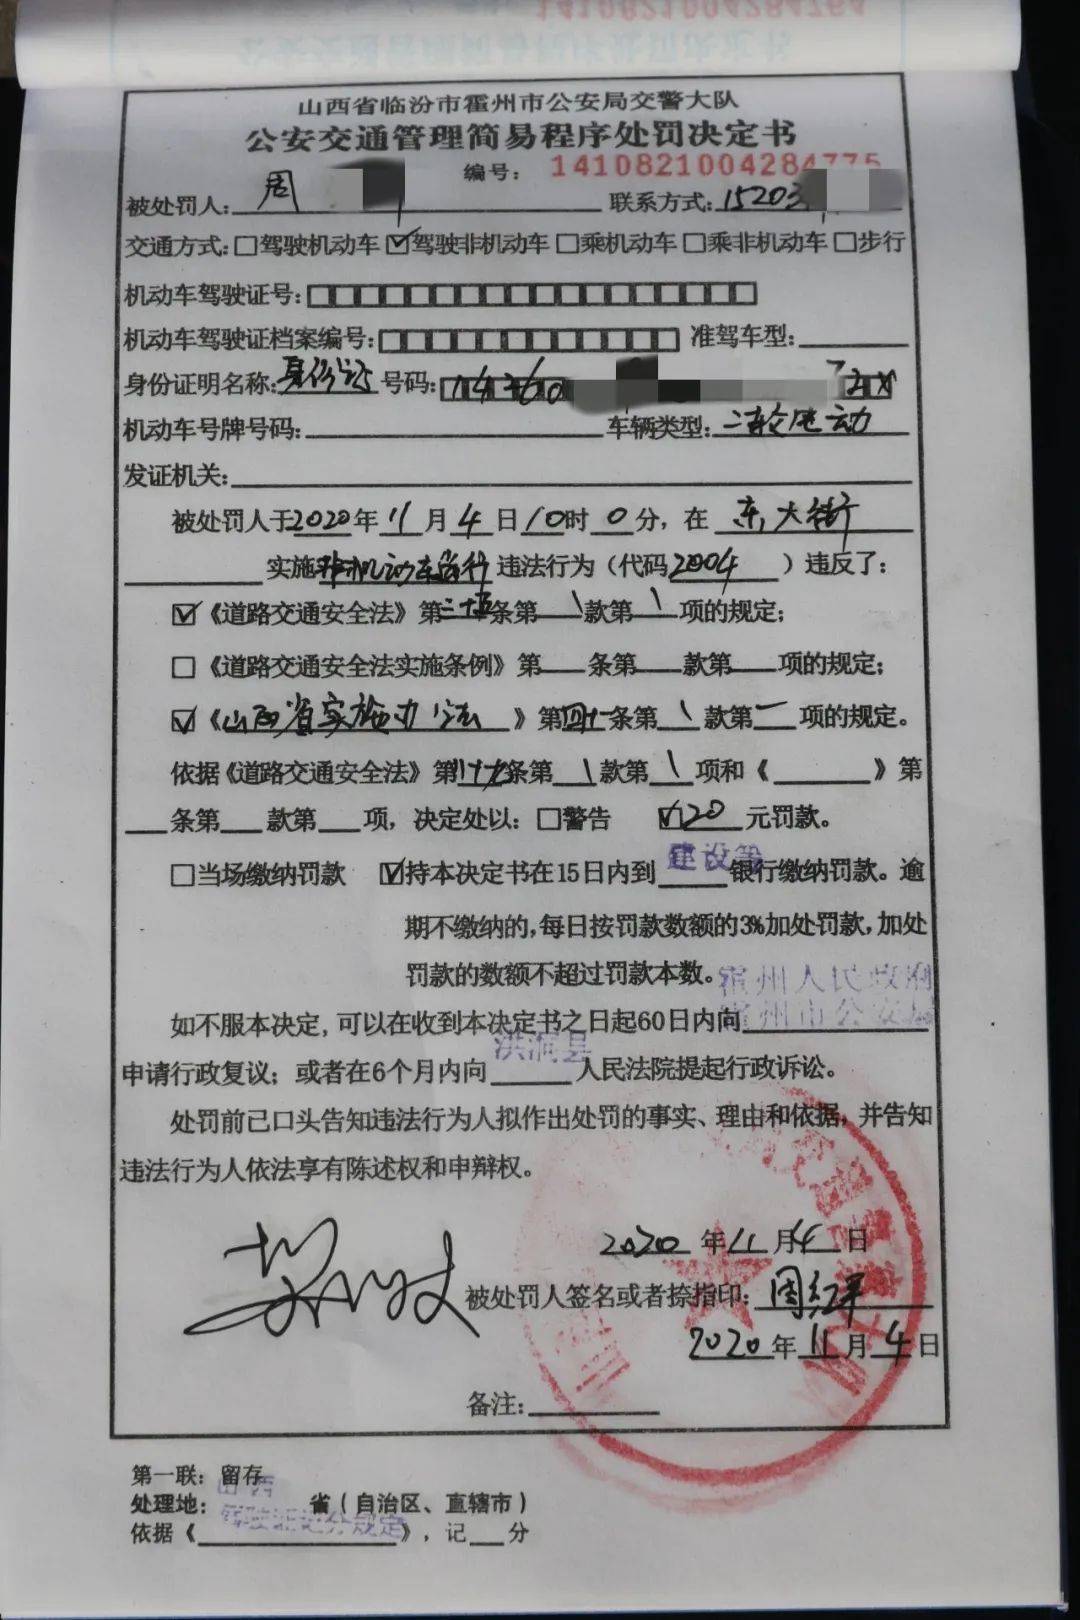 山西省临汾市霍州市公安局交警大队
公安交通管理简易程序处罚决定书
编号：1410821004284775
被处罚人：周 联系方式：15203
交通方式：□驾驶机动车 ☑驾驶非机动车 □乘机动车 □乘非机动车 □步行
机动车驾驶证号：
机动车驾驶证档案编号： 准驾车型：
身份证明名称：身份证 号码：14260 2X
机动车号牌号码： 车辆类型：二轮电动
发证机关：
被处罚人于2020年11月4日10时0分，在 东大街
实施非机动车逆行违法行为（代码2004）违反了：
☑《道路交通安全法》第三十五条第1款第1项的规定；
□《道路交通安全法实施条例》第 条第 款第 项的规定；
☑《山西省实施办法》第四十一条第1款第一项的规定。
依据《道路交通安全法》第八十九条第1款第1项和《 》第
条第 款第 项，决定处以：□警告 ☑20元罚款。
□当场缴纳罚款 ☑持本决定书在15日内到建设等银行缴纳罚款。逾
期不缴纳的，每日按罚款数额的3%加处罚款，加处
罚款的数额不超过罚款本数。
霍州人民政府
如不服本决定，可以在收到本决定书之日起60日内向霍州市公安局
申请行政复议；或者在6个月内向洪洞县人民法院提起行政诉讼。
处罚前已口头告知违法行为人拟作出处罚的事实、理由和依据，并告知
违法行为人依法享有陈述权和申辩权。
2020年11月4日
被处罚人签名或者捺指印：周红平
2020年11月4日
备注：
第一联：留存
处理地：山西省（自治区、直辖市）
依据《驾驶证记分规定》，记 分